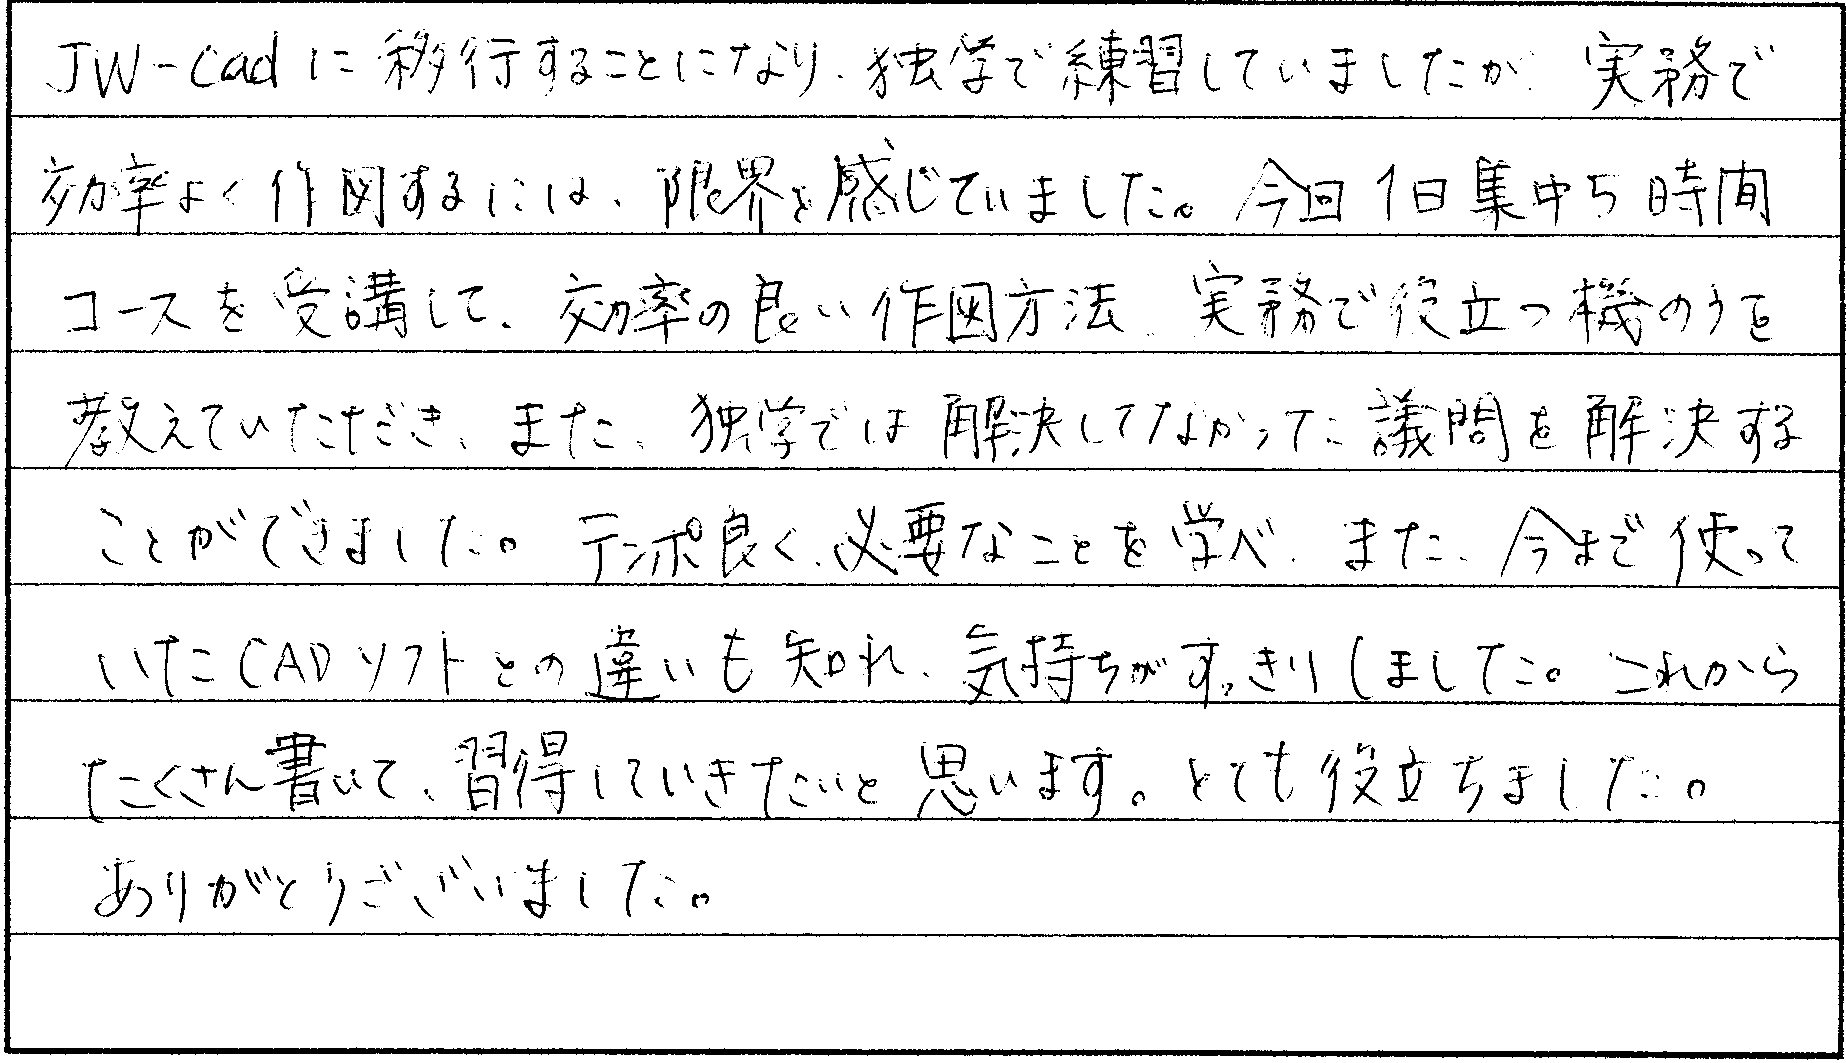 JW-Cadに移行することになり、独学で練習していましたが、実務で
効率よく作図するには、限界を感じていました。今回1日集中5時間
コースを受講して、効率の良い作図方法、実務で役立つ機のうを
教えていただき、また、独学では解決してなかった議問を解決する
ことができました。テンポ良く、必要なことを学べ、また、今まで使って
いたCADソフトとの違いも知れ、気持ちがすっきりしました。これから
たくさん書いて、習得していきたいと思います。とても役立ちました。
ありがとうございました。